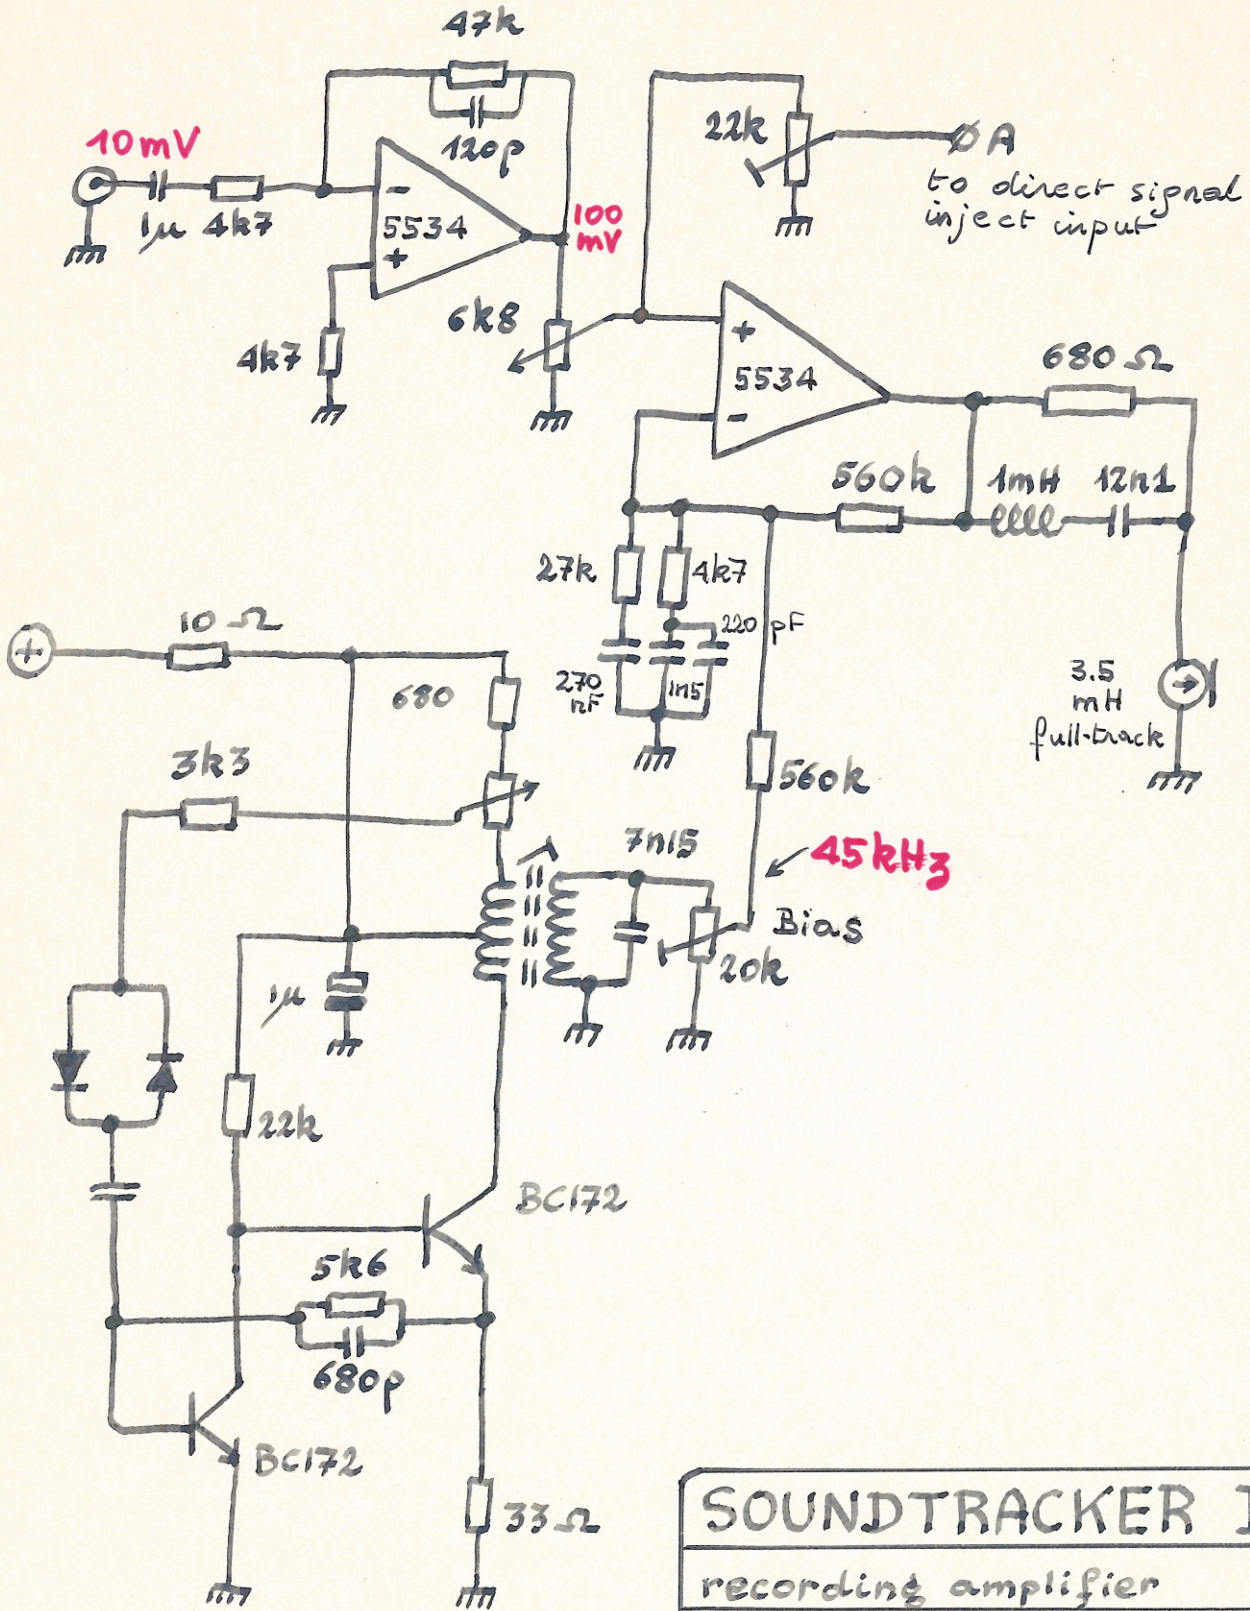 47k
120p
10mV
1µ 4k7
-
5534
+
100
mV
4k7
6k8
22k
ØA
to direct signal
inject input
+
5534
-
680Ω
560k
1mH
12n1
27k
4k7
220 pF
270
nF
1n5
3.5
mH
full-track
560k
10Ω
680
3k3
45kHz
7n15
Bias
20k
1µ
22k
BC172
5k6
680p
BC172
33Ω
SOUNDTRACKER
recording amplifier